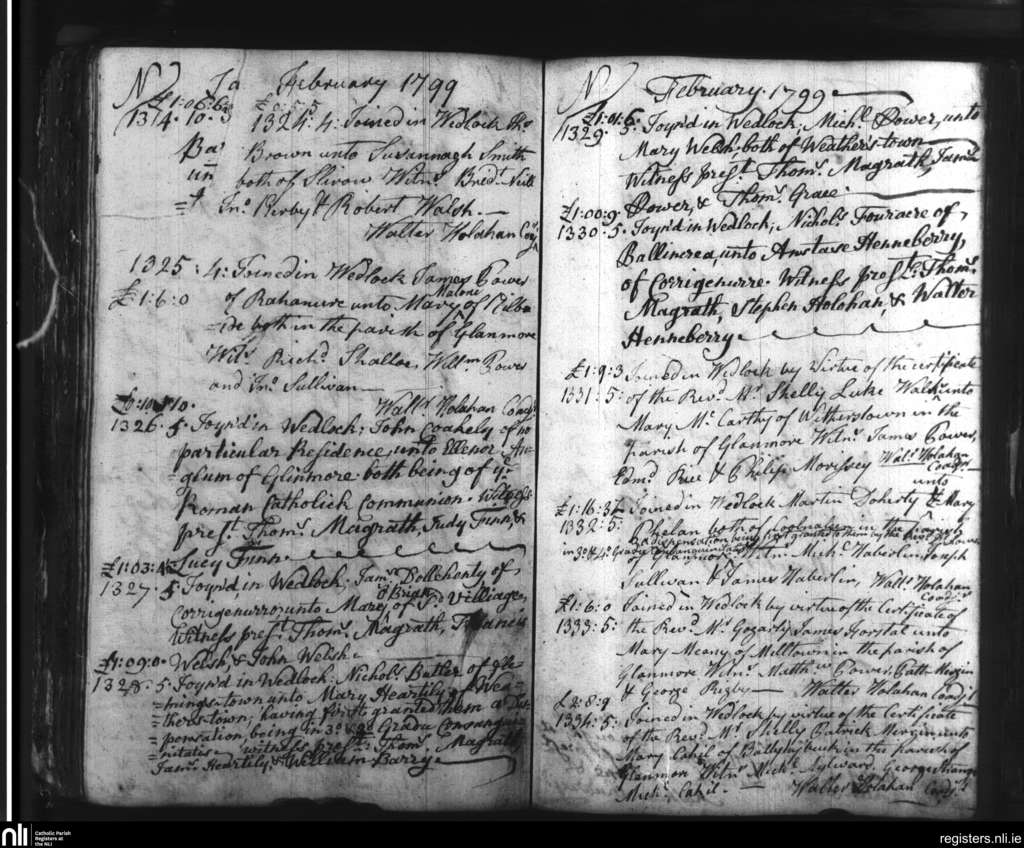 No Fd February 1799
£1:06:6
1314. 10. 3 1324: 4: Joined in Wedlock Thos
Brown unto Susannagh Smith
both of Slirow Witns Bridt
Jno Kerby & Robert Walsh.
Walter Holahan Coadjr
1325 : 4: Joined in Wedlock James Power
£1:6:0 of Rahanure unto Mary Malone of Kilbo
=ide both in the parish of Glanmore
Wits Richd Shallae, Willm Power
and Jno Sullivan
Walt Holahan Coadjr
£0:10:10.
1326. 5. Joyn'd in Wedlock; John Coakely of no
particular Residence, unto Ellenor An=
glum of Glinmore. both being of ye
Roman Catholick Communion. Witness
prest. Thoms. Magrath, Judy Finn, &
Lucy Finn
£1:03:
1327. 5. Joyn'd in Wedlock; Jams. Dollehonty of
Corrigenurro, unto Mary O'Brian, of sd. Villiage,
Witness prest. Thoms. Magrath, Francis
Welsh, & John Welsh.
£1:09:0.
1328. 5. Joyn'd in Wedlock; Nichols. Butler of Gle
=mings-town unto Mary Heartily of Wea=
=thers-town; having first granted them a Dis=
=pensation, being in 3o. & 4o. Gradu Consangui=
=nitatis. witness prest: Thoms. Magrath
Jams. Heartily, & William Barry.
No February. 1799
£1:01:6.
1329. 5. Joyn'd in Wedlock, Michl. Power, unto
Mary Welsh. both of Weathers-town
Witness prest. Thoms. Magrath, Jams
Power, & Thoms. Grace.
£1:00:9
1330. 5. Joyn'd in Wedlock; Nichols. Fouracre of
Ballincrea, unto Anstace Henneberry
of Corrigenurre. Witness prest. Thoms.
Magrath, Stephen Holohan, & Walter
Henneberry.
£1:9:3 Joined in Wedlock by Virtue of the certificate
1331: 5: of the Revd Mr Shelly Luke Walsh unto
Mary Mc Carthy of Witherstown in the
parish of Glanmore Witns James Power,
Edmd Rice & Philip Morissey Walt Holahan
Coadjr
£1:16:3 Joined in Wedlock Martin Doherty unto Mary
1332: 5: Phelan both of in the parish
a dispensation being first granted to them by the
in 3o & 4o Gradu Consanguinitatis
of Glanmore Witns Michl Haberlin Joseph
Sullivan & James Haberlin, Walt Holahan
Coadjr
£1:6:0 Joined in Wedlock by virtue of the Certificate of
1333: 5: the Revd Mr Gogarty James Forstal unto
Mary Meany of Milltown in the parish of
Glanmore Witns Matthw Power, Patt Mergin
& George Rigby Walter Holahan Coadjr
£2:8:9
1334: 5: Joined in Wedlock by virtue of the Certificate
of the Revd Mr Shelly Patrick Mergin unto
Mary Cahil of Ballybybuck in the parish of
Glanmore Witns Michl Aylward. George Strange
Michl Cahil. Walter Holahan Coadjr
nli
Catholic Parish
Registers at
the NLI
registers.nli.ie